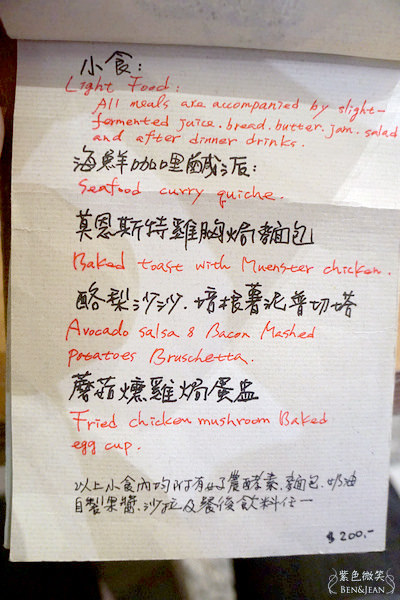 小食:
Light Food:
All meals are accompanied by slight-
fermented juice. bread. butter. jam. salad
and after dinner drinks.
海鮮咖哩鹹派:
Seafood curry quiche.
莫恩斯特雞胸焗麵包
Baked toast with Muenster chicken.
酪梨沙沙.培根薯泥普切塔
Avocado salsa & Bacon Mashed
Potatoes Bruschetta.
蘑菇燻雞焗蛋盅
Fried chicken mushroom Baked
egg cup.
以上小食內均附有 酵素.麵包.奶油
自製果醬.沙拉及餐後飲料任一
$200.-
紫色微笑
BEN&JEAN